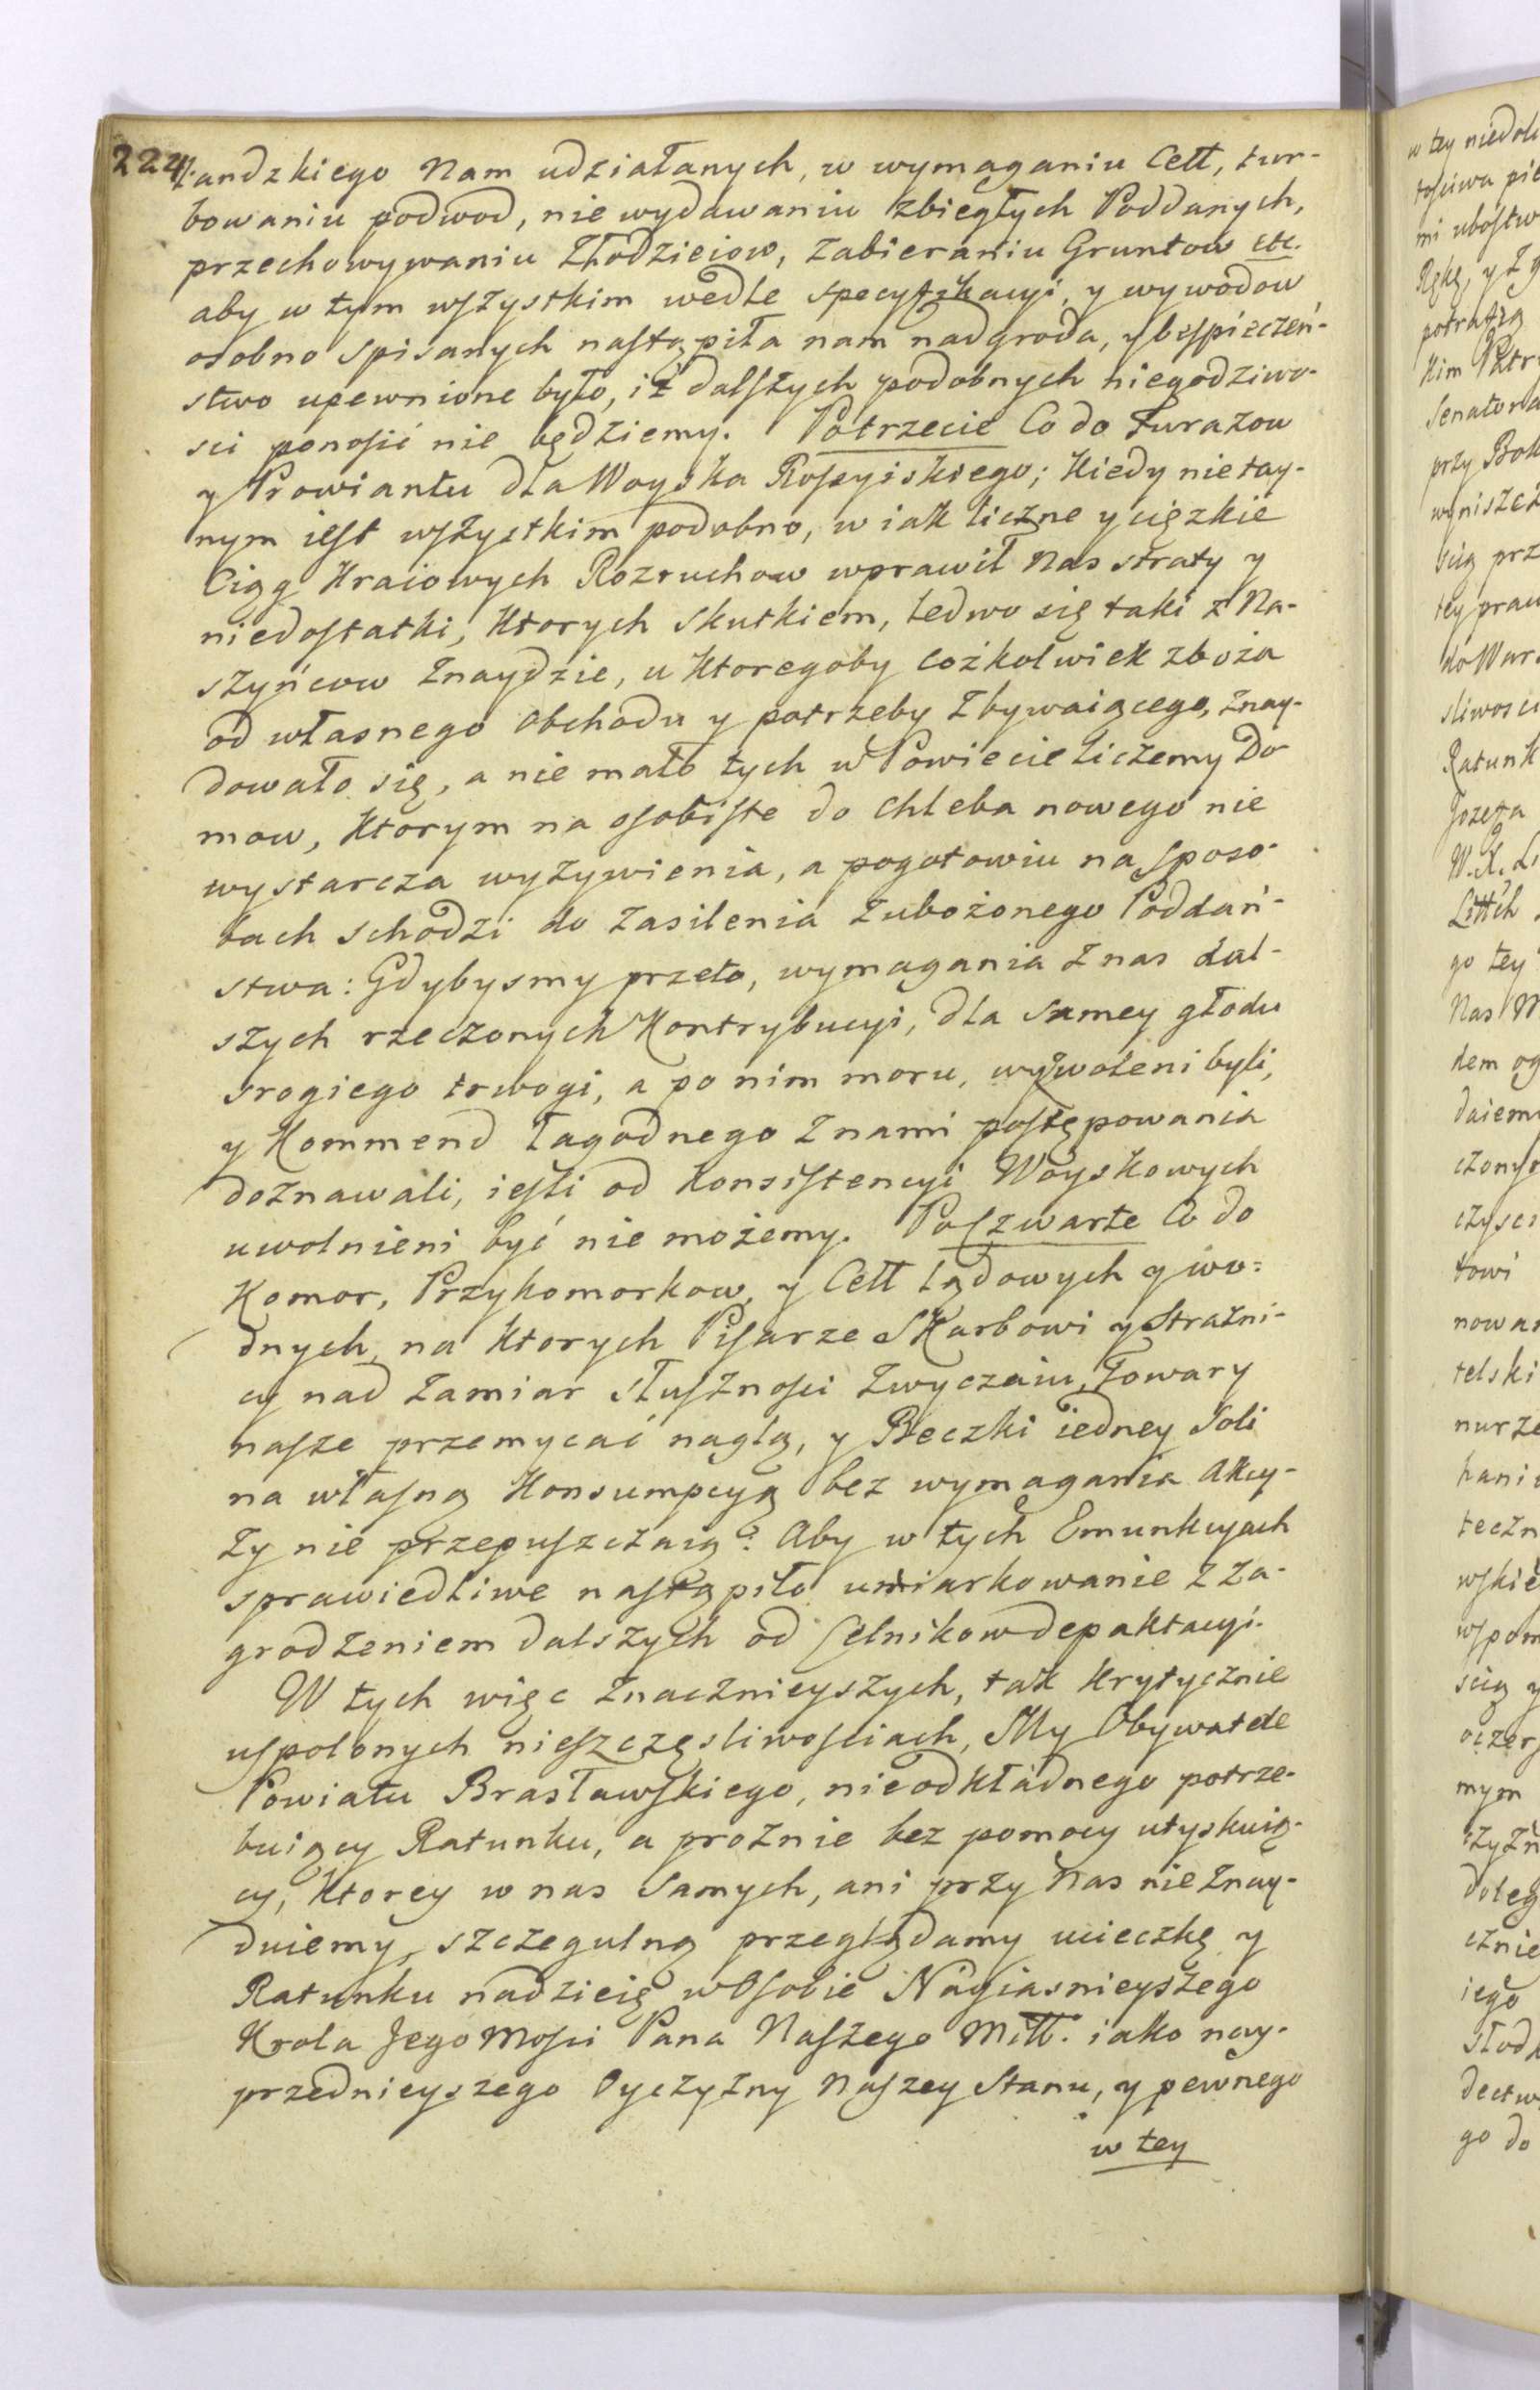 224
landzkiego Nam udziałanych, w wymaganiu Cell, tur-
bowaniu podwod, nie wydawaniu zbiegłych Poddanych,
przechowywaniu Złodzieiow, Zabieraniu Gruntow etc.
aby w tym wszystkim wedle specyfikacyi, y wywodow
osobno spisanych nastąpiła nam nadgroda, y bespieczeń-
stwo upewnione było, iż dalszych podobnych niegodziwo-
sci ponosić nie będziemy. Potrzecie Co do Furazow
y Prowiantu dla Woyska Rossyiskiego; Kiedy nie tay-
nym iest wszystkim podobno, w iak liczne y cięzkie
Ciąg Kraiowych Rozruchow wprawił Nas straty y
niedostatki, Ktorych skutkiem, ledwo się taki z Na-
szyńcow Znaydzie, u Ktoregoby cożkolwiek zboża
od własnego obchodu y potrzeby Zbywaiącego, znay-
dowało się, a nie mało tych w Powiecie liczemy Do-
mow, Ktorym na osobiste do chleba nowego nie
wystarcza wyżywienia, a pogotowiu na sposo-
bach schodzi do Zasilenia Zubożonego Poddań-
stwa: Gdybysmy przeto, wymagania z nas dal-
szych rzeczonych Kontrybucyi, dla samey głodu
srogiego trwogi, a po nim moru, wyzwoleni byli,
y Kommend łagodnego z nami postępowania
doznawali, iesli od Konsistencyi Woyskowych
uwolnieni być nie możemy. Poczwarte Co do
Komor, Przykomorkow, y Cell lądowych y wo-
dnych, na Ktorych Pisarze Skarbowi y Strażni-
cy nad zamiar słuszności Zwyczaiu, Towary
nasze przemycać naglą, y Beczki iedney Soli
na własną Konsumpcyą bez wymagania Akcy-
zy nie przepuszczaią: Aby w tych Emunkcyach
sprawiedliwe nastąpiło umiarkowanie z za-
grodzeniem dalszych od Celnikow depaktacyi.
W tych więc Znacznieyszych, tak krytycznie
uspolonych nieszczęsliwościach, My Obywatele
Powiatu Brasławskiego, nieodkładnego potrze-
buiący Ratunku, a prożnie bez pomocy utyskuią-
cy, Ktorey w nas samych, ani przy nas nie Znay-
duiemy, szczegulną przeglądamy ucieczkę y
Ratunku nadzieię w Osobie Nayiasnieyszego
Krola Jego Mości Pana Naszego Miłł. iako nay-
przednieyszego Oyczyzny Naszey Stanu, y pewnego
w tey